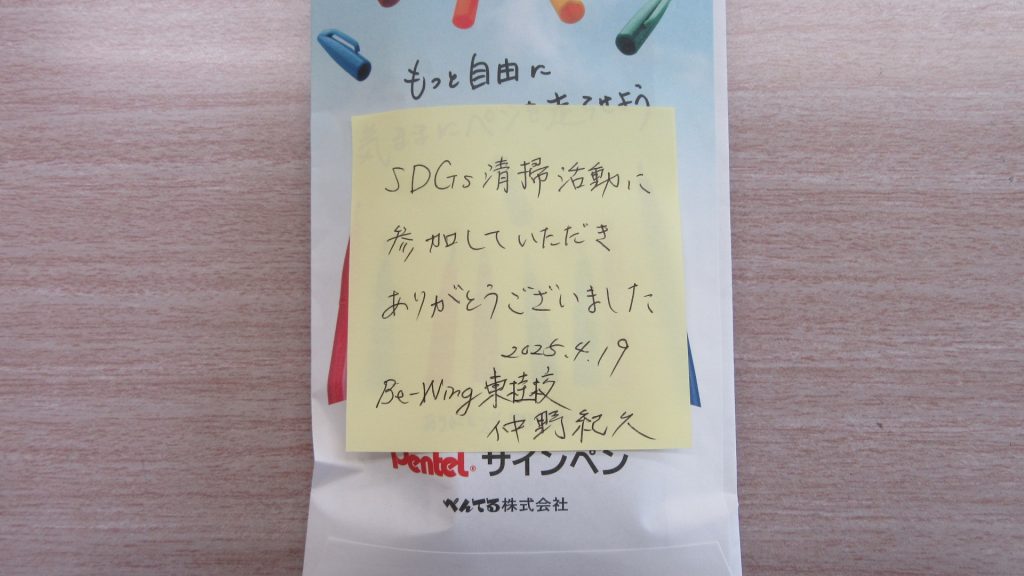 もっと自由に
気ままにペンを走らせよう
SDGs清掃活動に
参加していただき
ありがとうございました
2025.4.19
Be-Wing東桂校
仲野紀久
Pentel® サインペン
ぺんてる株式会社